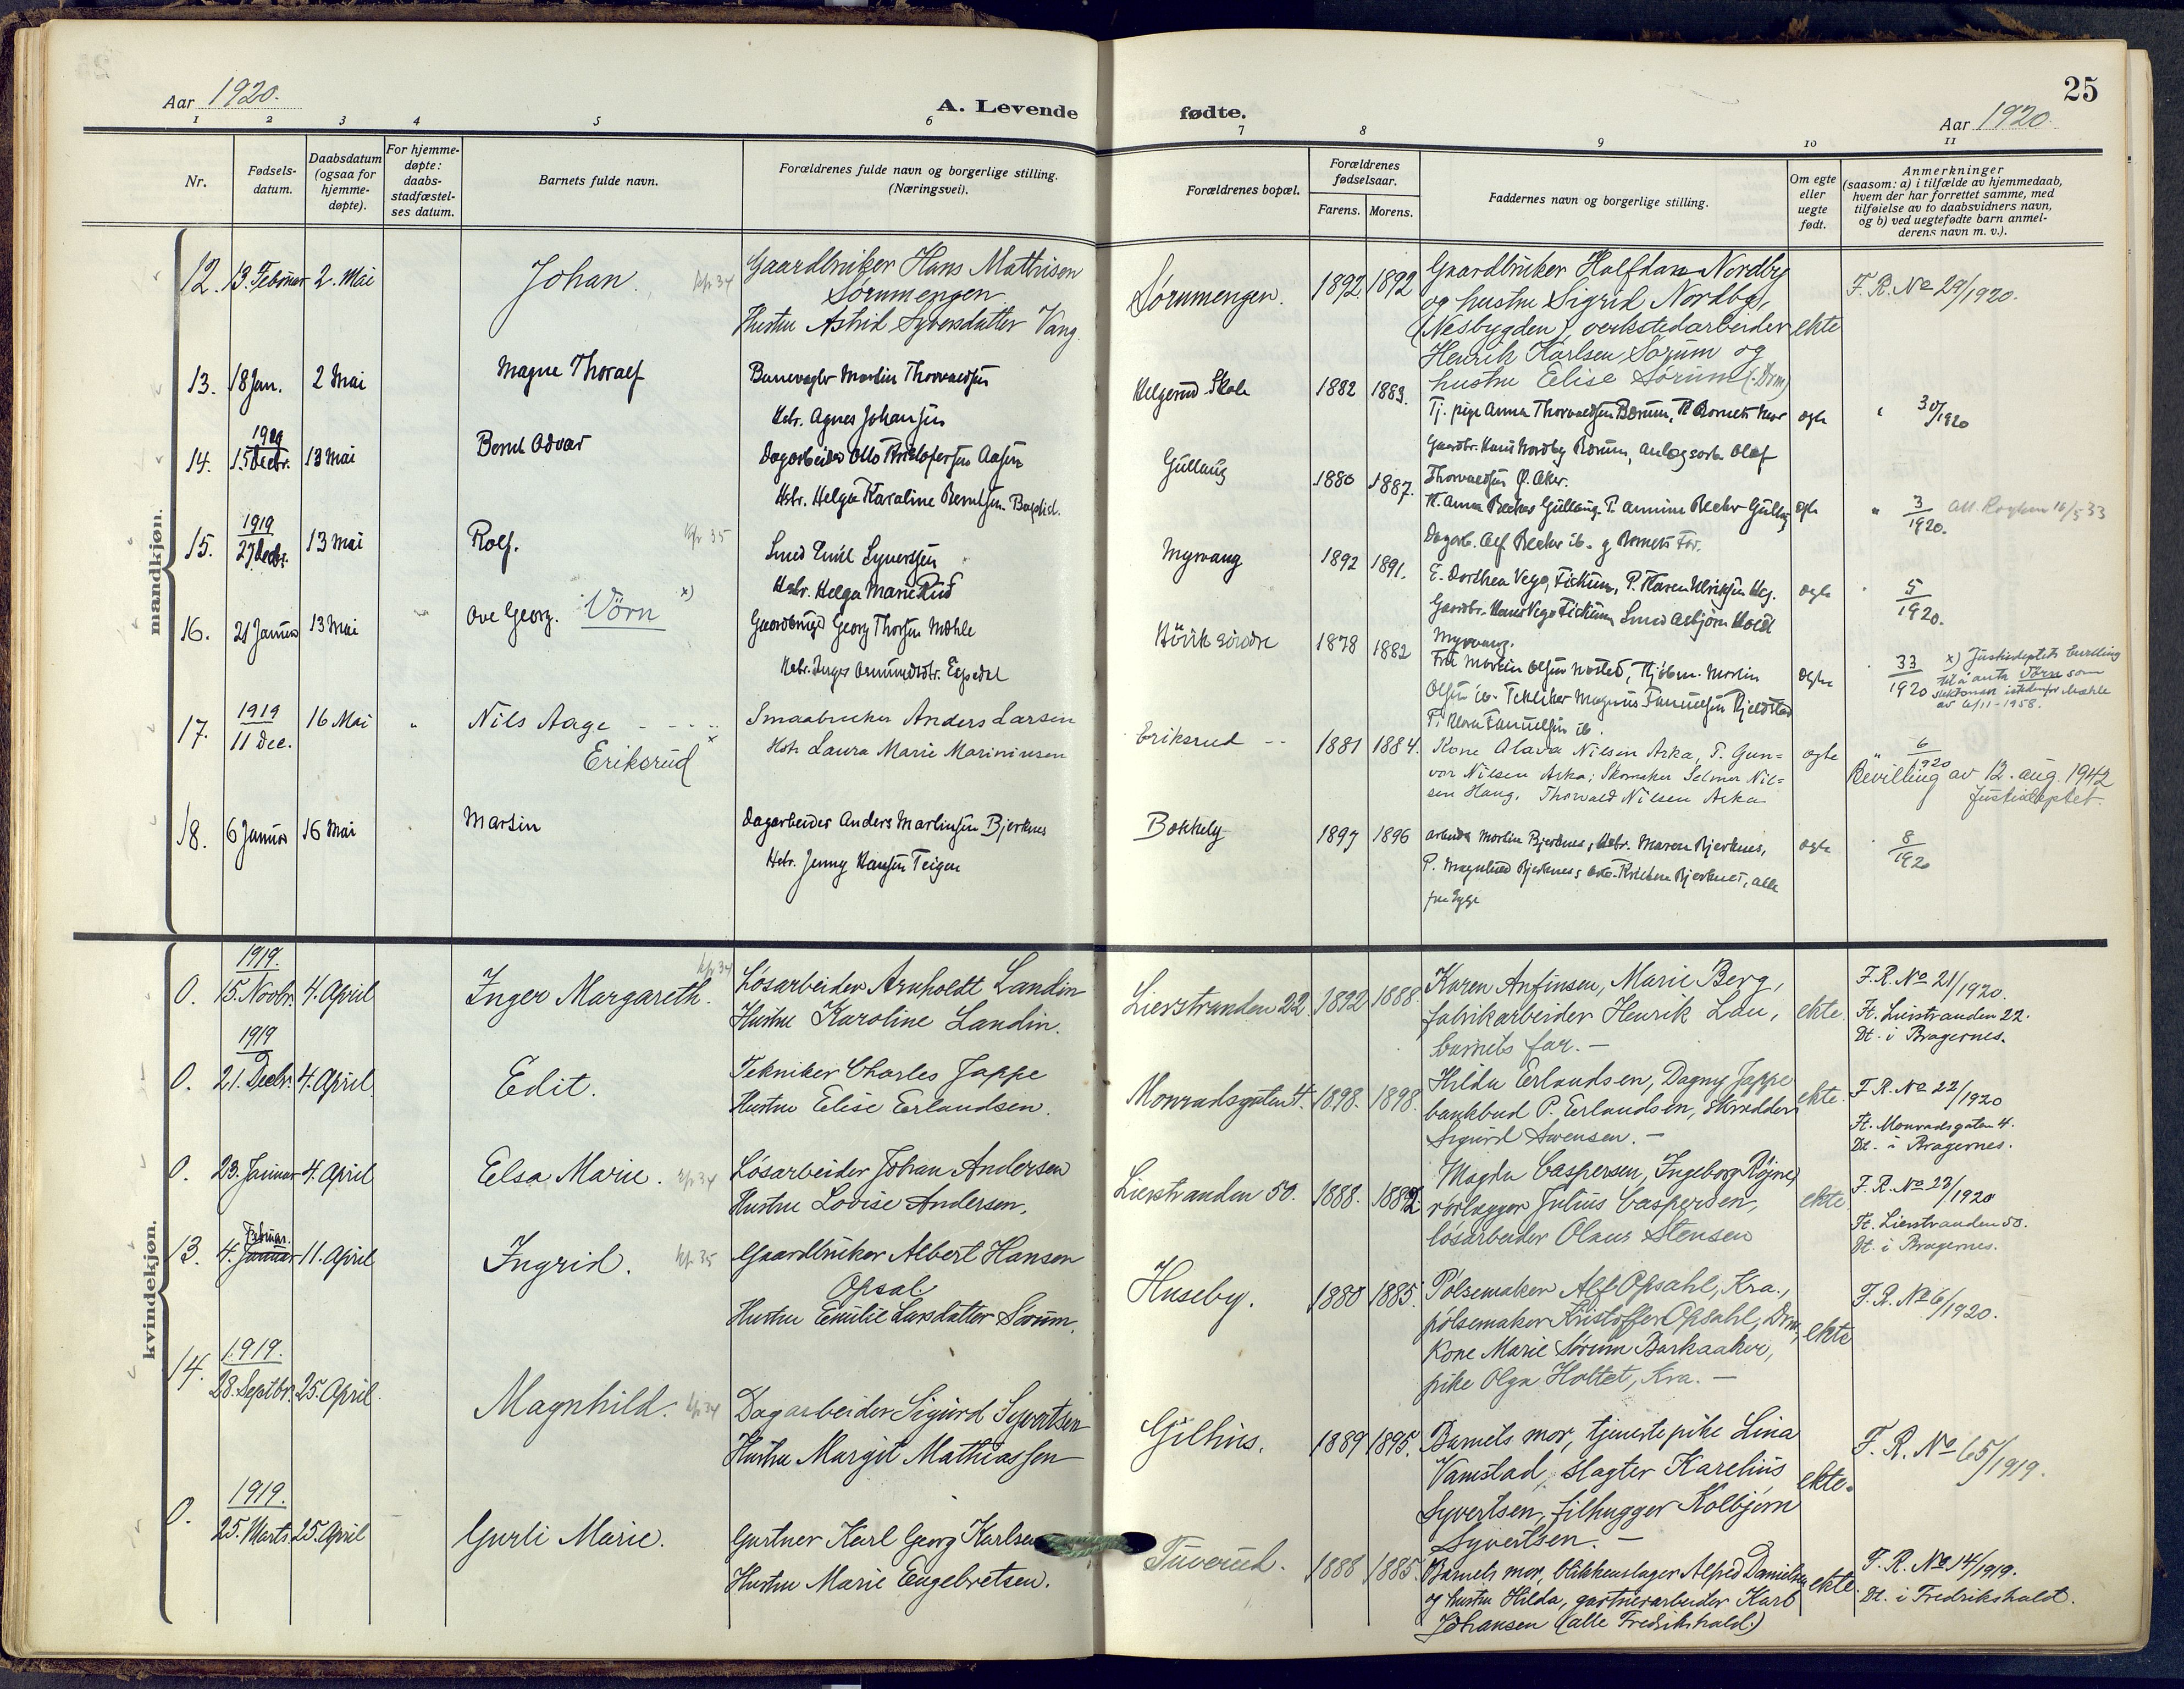 25
Aar 1920.
A. Levende fødte.
Aar 1920.
1 2 3 4 5 6 7 8 9 10 11
Nr.
Fødsels-
datum.
Daabsdatum
(ogsaa for
hjemme-
døpte).
For hjemme-
døpte:
daabs-
stadfæstel-
ses datum.
Barnets fulde navn.
Forældrenes fulde navn og borgerlige stilling.
(Næringsvei).
Forældrenes bopæl.
Forældrenes
fødselsaar.
Farens. Morens.
Faddernes navn og borgerlige stilling.
Om egte
eller
uegte
født.
Anmerkninger
(saasom: a) i tilfælde av hjemmedaab,
hvem der har forrettet samme, med
tilføielse av to daabsvidners navn,
og b) ved uegtefødte barn anmel-
derens navn m. v.).
mandkjøn.
12. 13. Februar 2. Mai
Johan.
Gaardbruker Hans Mathisen
Sørumengen
Hustru Astrid Syversdatter Vang.
Sørumengen. 1892 1892
Gaardbruker Halfdan Nordby
og hustru Sigrid Nordby,
(Nesbygden), verkstedarbeider
Henrik Karlsen Sørum og
hustru Elise Sørum (Drm)
ekte
F. R. No 29/1920.
13. 18 Jan. 2 Mai
Magne Thoralf
Banevogter Martin Thorvaldsen
Hstr. Agnes Johansen
Helgerud Skole 1882 1883.
Tj. pige Anna Thorvaldsen Bærum, Barnets Mor
Gaardbr. Hans Nordby Bærum, Anlegsarb. Olaf
Thorvaldsen Ø. Aker.
egte
30/1920
14. 1919 15 Decbr. 13 Mai
Bernt Odvar
Dagarbeider Otto Kristofersen Aasen
Hstr. Helga Karoline Berntsen
Gullaug 1880 1887.
K. Anna Becker Gullaug P. Annine Becker Gullaug
Dagarb. Alf Becker ib. og Barnets Far.
egte
3/1920.
15. 1919 27 Decbr. 13 Mai
Rolf.
Kfr 35
Smed Emil Syvertsen
Hstr. Helga Marie Rud
Myrvang 1892 1891.
E. Dorthea Vego, Fiskum, P. Karen Ulriksen
Gaardbr. Hans Vego Fiskum Smed Asbjørn
Myrvang.
egte
5/1920.
16. 21 Januar 13 Mai
Ove Georg. Vörn x)
Georg Thorsen Mæhle
Hstr. Inger Aamundsdtr. Espedal
Høvik søndre 1878 1882
Fru Martin Olsen Kjøbm. Martin
Olsen ib. Tekniker Magnus Samuelsen Kjeldstad
Fr. Klara Samuelsen ib.
egte
33/1920
x) Justisdeptets bevilling
til å anta Vörn som
slektsnavn istedenfor Mæhle
av 6/11-1958.
17. 1919 11 Dec. 16 Mai
Nils Aage
Eriksrud x
Smaabruker Anders Larsen
Hstr Laura Marie Mariniusen
Eriksrud 1881 1884.
Kone Olava Nilsen Aska, P. Gun=
vor Nilsen Aska; Skomaker Selmer Nil=
sen Haug. Thorvald Nilsen Aska
egte
6/1920
Bevilling av 12. aug. 1942
Justisdeptet.
18. 6 Januar 16 Mai
Martin
Dagarbeider Anders Martinsen Bjerknes
Hstr. Jenny Hansen Teigen
Bakkely 1897 1896
Arbeider Martin Bjerknes, Hstr. Maren Bjerknes,
P. Magnhild Bjerknes, Kristian Bjerknes, alle
egte
8/1920
kvindekjøn.
0. 1919. 15. Novbr. 4. April
Inger Margareth.
kfr 34
Løsarbeider Arnholdt Landin
Hustru Karoline Landin.
Lierstranden 22 1892 1888
Karen Anfinsen, Marie Berg,
fabrikarbeider Henrik Lau,
barnets far. —
ekte.
F. R. No 21/1920.
Ft. Lierstranden 22.
Dt. i Bragernes.
0. 1919 21. Decbr. 4. April
Edit.
Tekniker Charles Jappe
Hustru Elise Erlandsen.
Monradsgaten 4. 1898. 1898.
Hilda Erlandsen, Dagny Jappe
bankbud P. Erlandsen, skredder
Sigurd Svensen. —
ekte.
F. R. No 22/1920
Ft. Monradsgaten 4.
Dt. i Bragernes.
0. 23. Januar 4. April
Elsa Marie.
Kfr 34
Løsarbeider Johan Andersen
Hustru Lovise Andersen.
Lierstranden 50. 1888. 1882
Magda Caspersen, Ingeborg
rørlegger Julius Caspersen,
løsarbeider Olaus Stensen
ekte
F. R. No 23/1920
Ft. Lierstranden 50.
Dt. i Bragernes.
13. Februar. 4. Januar 11. April
Ingrid.
kfr 35
Gaardbruker Albert Hansen
Opsal
Hustru Emilie Larsdatter Sørum.
Huseby. 1880 1885.
Pølsemaker Alf Opsahl, Kra.,
pølsemaker Kristoffer Opsahl, Drm,
Kone Marie Sørum Barkaaker,
pike Olga Holtet, Kra. —
ekte
F. R. No 6/1920.
14. 1919. 28. Septbr. 25. April
Magnhild.
kfr 34
Dagarbeider Sigurd Syvertsen
Hustru Margit Mathiassen
Gilhus. 1889 1895.
Barnets mor, tjenestepike Lina
Vamstad, slagter Karelius
Syvertsen, filhugger Kolbjørn
Syvertsen. —
ekte.
F. R. No 65/1919.
0. 1919. 25. Marts 25. April
Gurli Marie.
Gartner Karl Georg Karlsen
Hustru Marie Engebretsen.
Tuverud. 1888 1885.
Barnets mor, blikkenslager Alfred Danielsen
og hustru Hilda, gartnerarbeider Karl
Johansen (alle Fredrikshald.)
ekte.
F. R. No 14/1919.
Dt. i Fredrikshald.